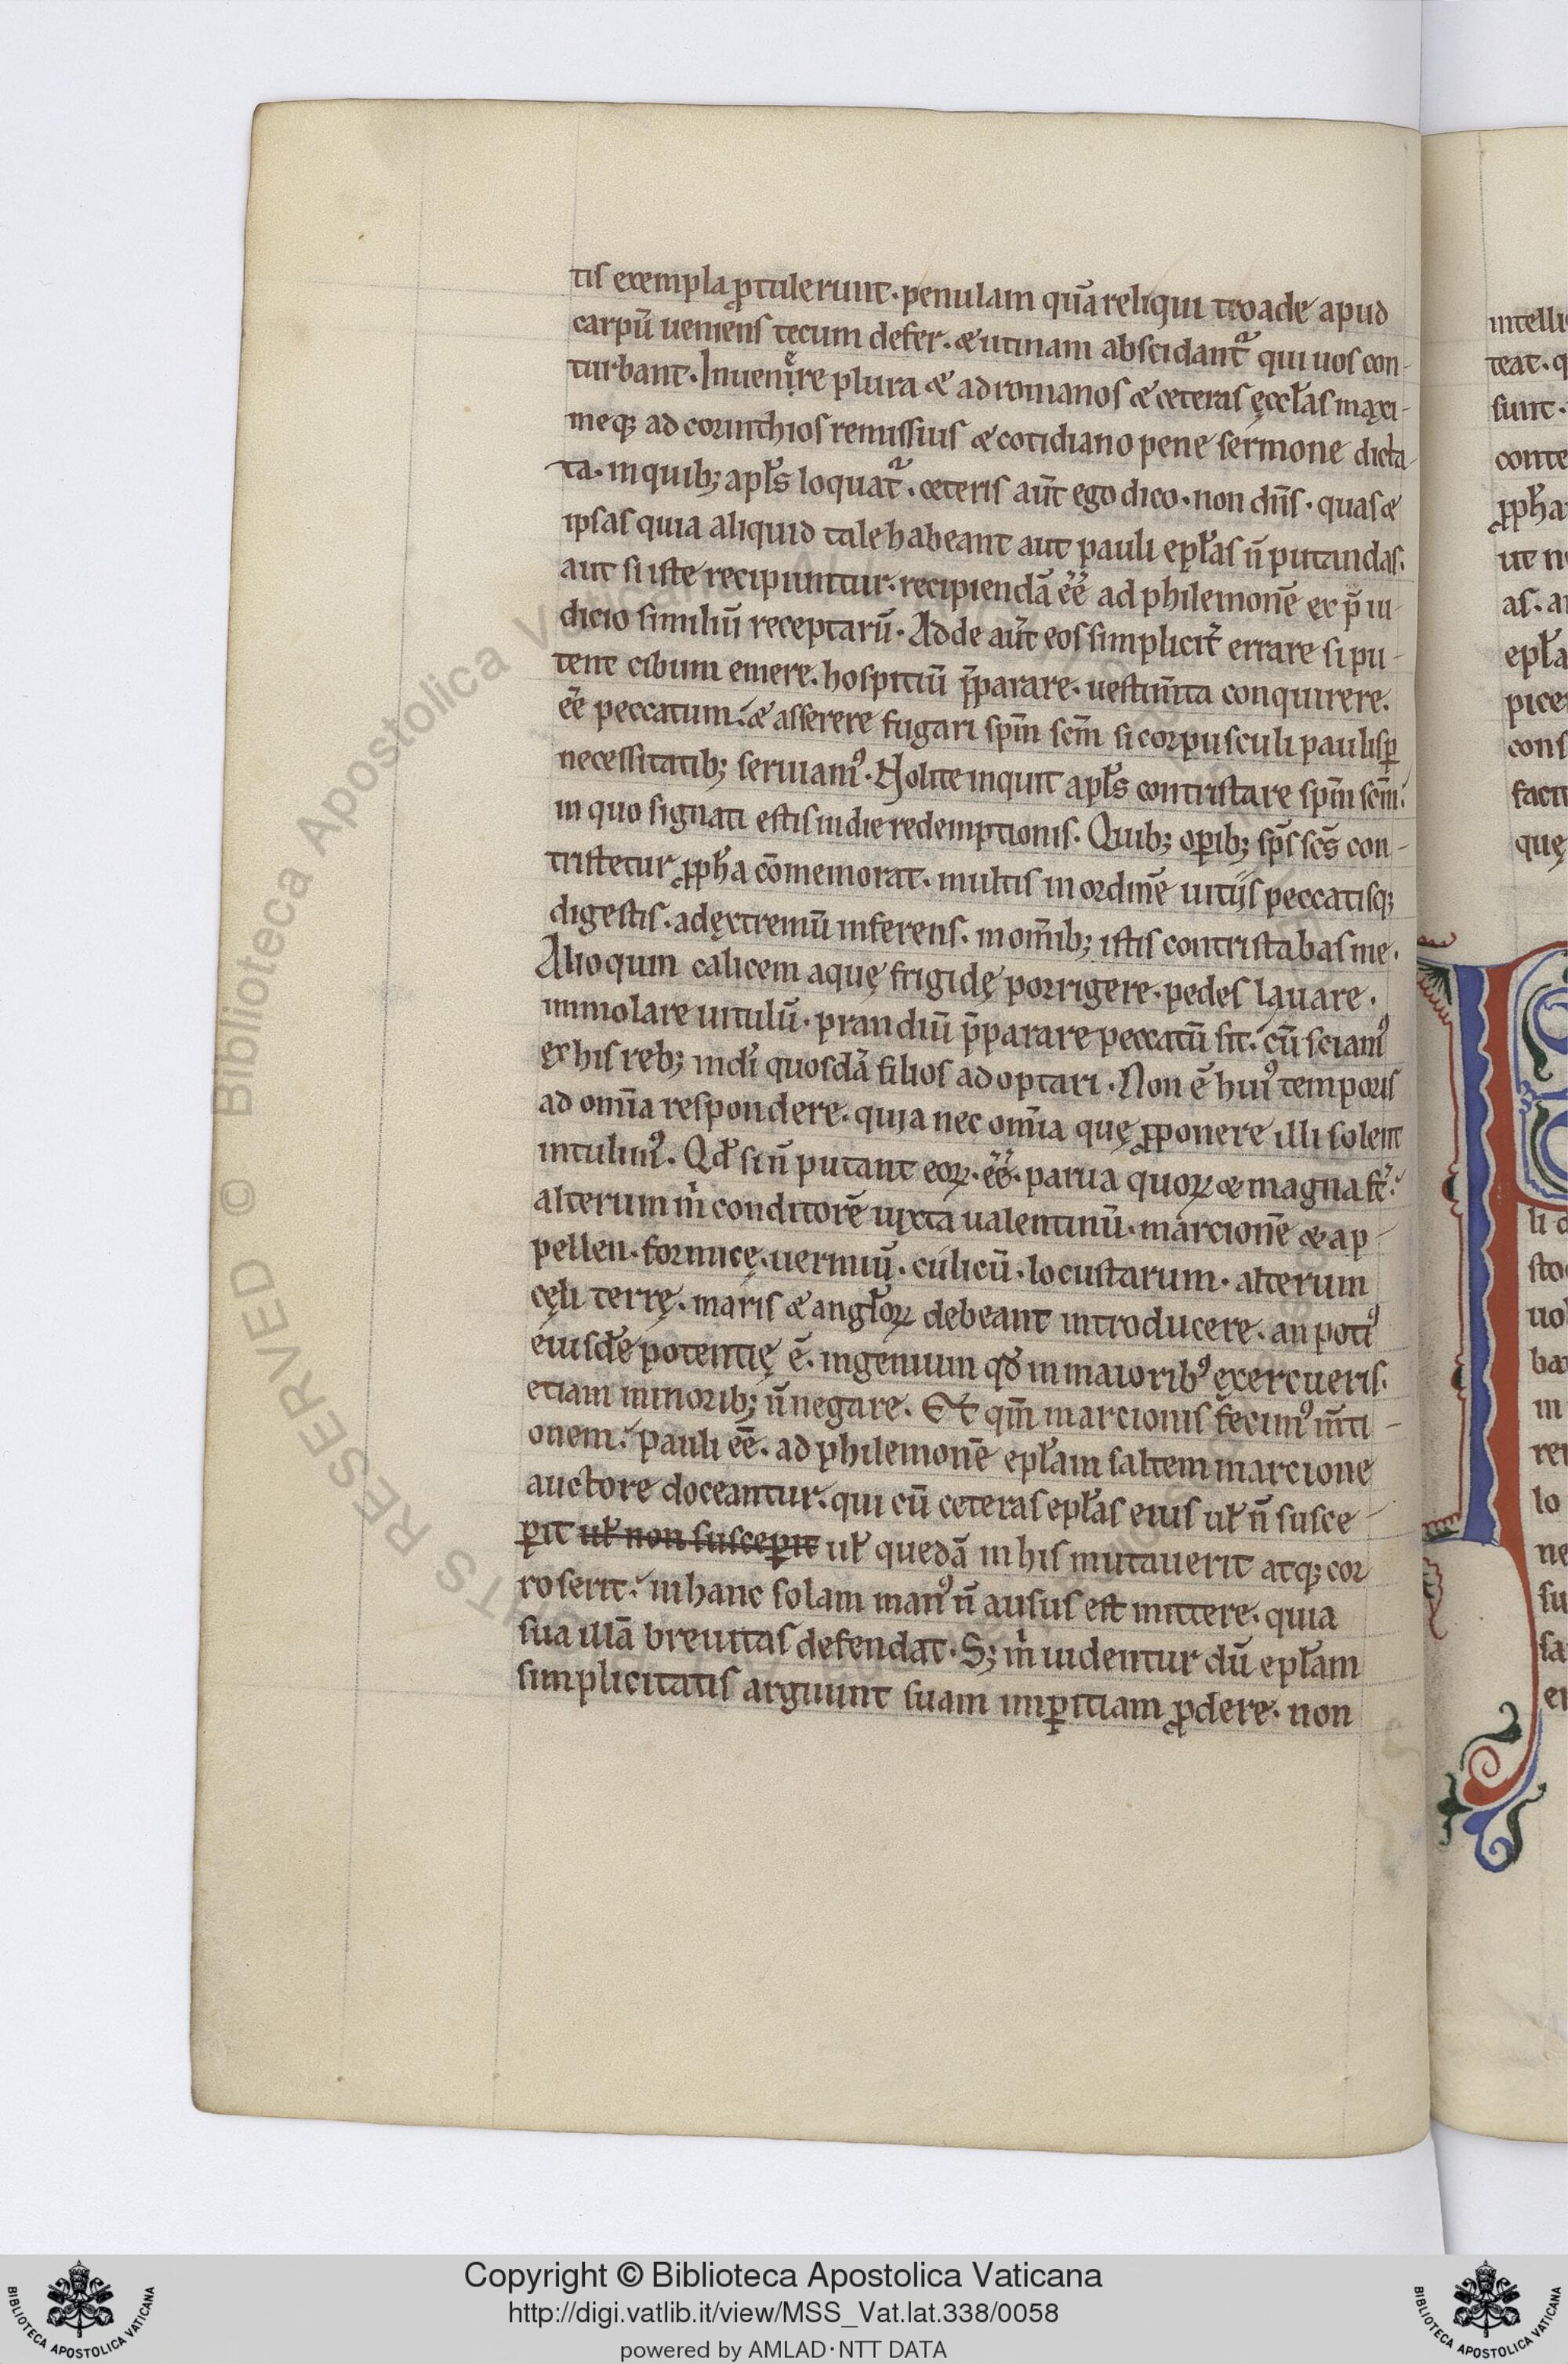 tis exempla ꝓtulerunt. penulam quā reliqui troade apud
carpū ueniens tecum defer. & utinam abscidantᷣ qui uos con-
turbant. Inuenire plura & ad romanos & ceteras ęccl̄as maxi-
meq; ad corinthios remissius & cotidiano pene sermone dicta-
ta. in quib; apl̄s loquatᷣ. ceteris aūt ego dico. non dn̄s. quas &
ipsas quia aliquid tale habeant aut pauli epl̄as n̄ putandas.
aut si iste recipiuntur. recipiendā ēē ad philemonē ex p̄iu-
dicio similiū receptarū. Adde aūt eos simplicit̄ errare si pu-
tent cibum emere. hospitiū p̄parare. uestim̄ta conquirere.
ēē peccatum. & asserere fugari sp̄m sc̄m si corpusculi paulisꝑ
necessitatib; seruiamꝰ. Nolite inquit apl̄s contristare sp̄m sc̄m.
in quo signati estis in die redemptionis. Quib; oꝑib; sp̄s sc̄s con-
tristetur ꝓph̄a cōmemorat. multis in ordinē uitijs peccatisq;
digestis. ad extremū inferens. in om̄ib; istis contristabas me.
Alioquin calicem aquę frigidę porrigere. pedes lauare.
immolare uitulū. prandiū p̄parare peccatū sit. cū sciamꝰ
ex his reb; in di quosdā filios adoptari. Non ē huiꝰ temporis
ad om̄ia respondere. quia nec om̄ia quę ꝓponere illi solent
intulimꝰ. Qd̄ si n̄ putant eoꝝ. ēē. parua quoꝝ & magna st̄.
alterum m̄ conditorē iuxta ualentinū. marcionē & ap-
pellen. formicę. uermiū. culicū. locustarum. alterum
cęli terrę. maris & angl̄oꝝ debeant introducere. an potiꝰ
eiusdē potentię ē. ingenium qd̄ in maioribꝰ exercueris.
etiam minorib; n̄ negare. Et qm̄ marcionis fecimꝰ m̄ti-
onem. pauli ēē. ad philemonē epl̄am saltem marcione
auctore doceantur. qui cū ceteras epl̄as eius ul̄ n̄ susce-
ꝑit ul̄ non susceꝑit ul̄ quedā in his mutauerit atq; cor
roserit. in hanc solam manꝰ n̄ ausus est mittere. quia
sua illā breuitas defendat. S; m̄ uidentur dū epl̄am
simplicitatis arguunt suam imꝑitiam ꝓdere. non
intelli
teat. q
sunt.
conte
ꝓph̄a
ut n
as. a
epl̄a
pice
cons
faci
quę
li d
sto
uo
ba
in
re
lo
ne
su
sa
e
© Biblioteca Apostolica Vaticana
Copyright © Biblioteca Apostolica Vaticana
http://digi.vatlib.it/view/MSS_Vat.lat.338/0058
powered by AMLAD·NTT DATA
BIBLIOTECA APOSTOLICA VATICANA
BIBLIOTECA APOSTOLICA VATICANA